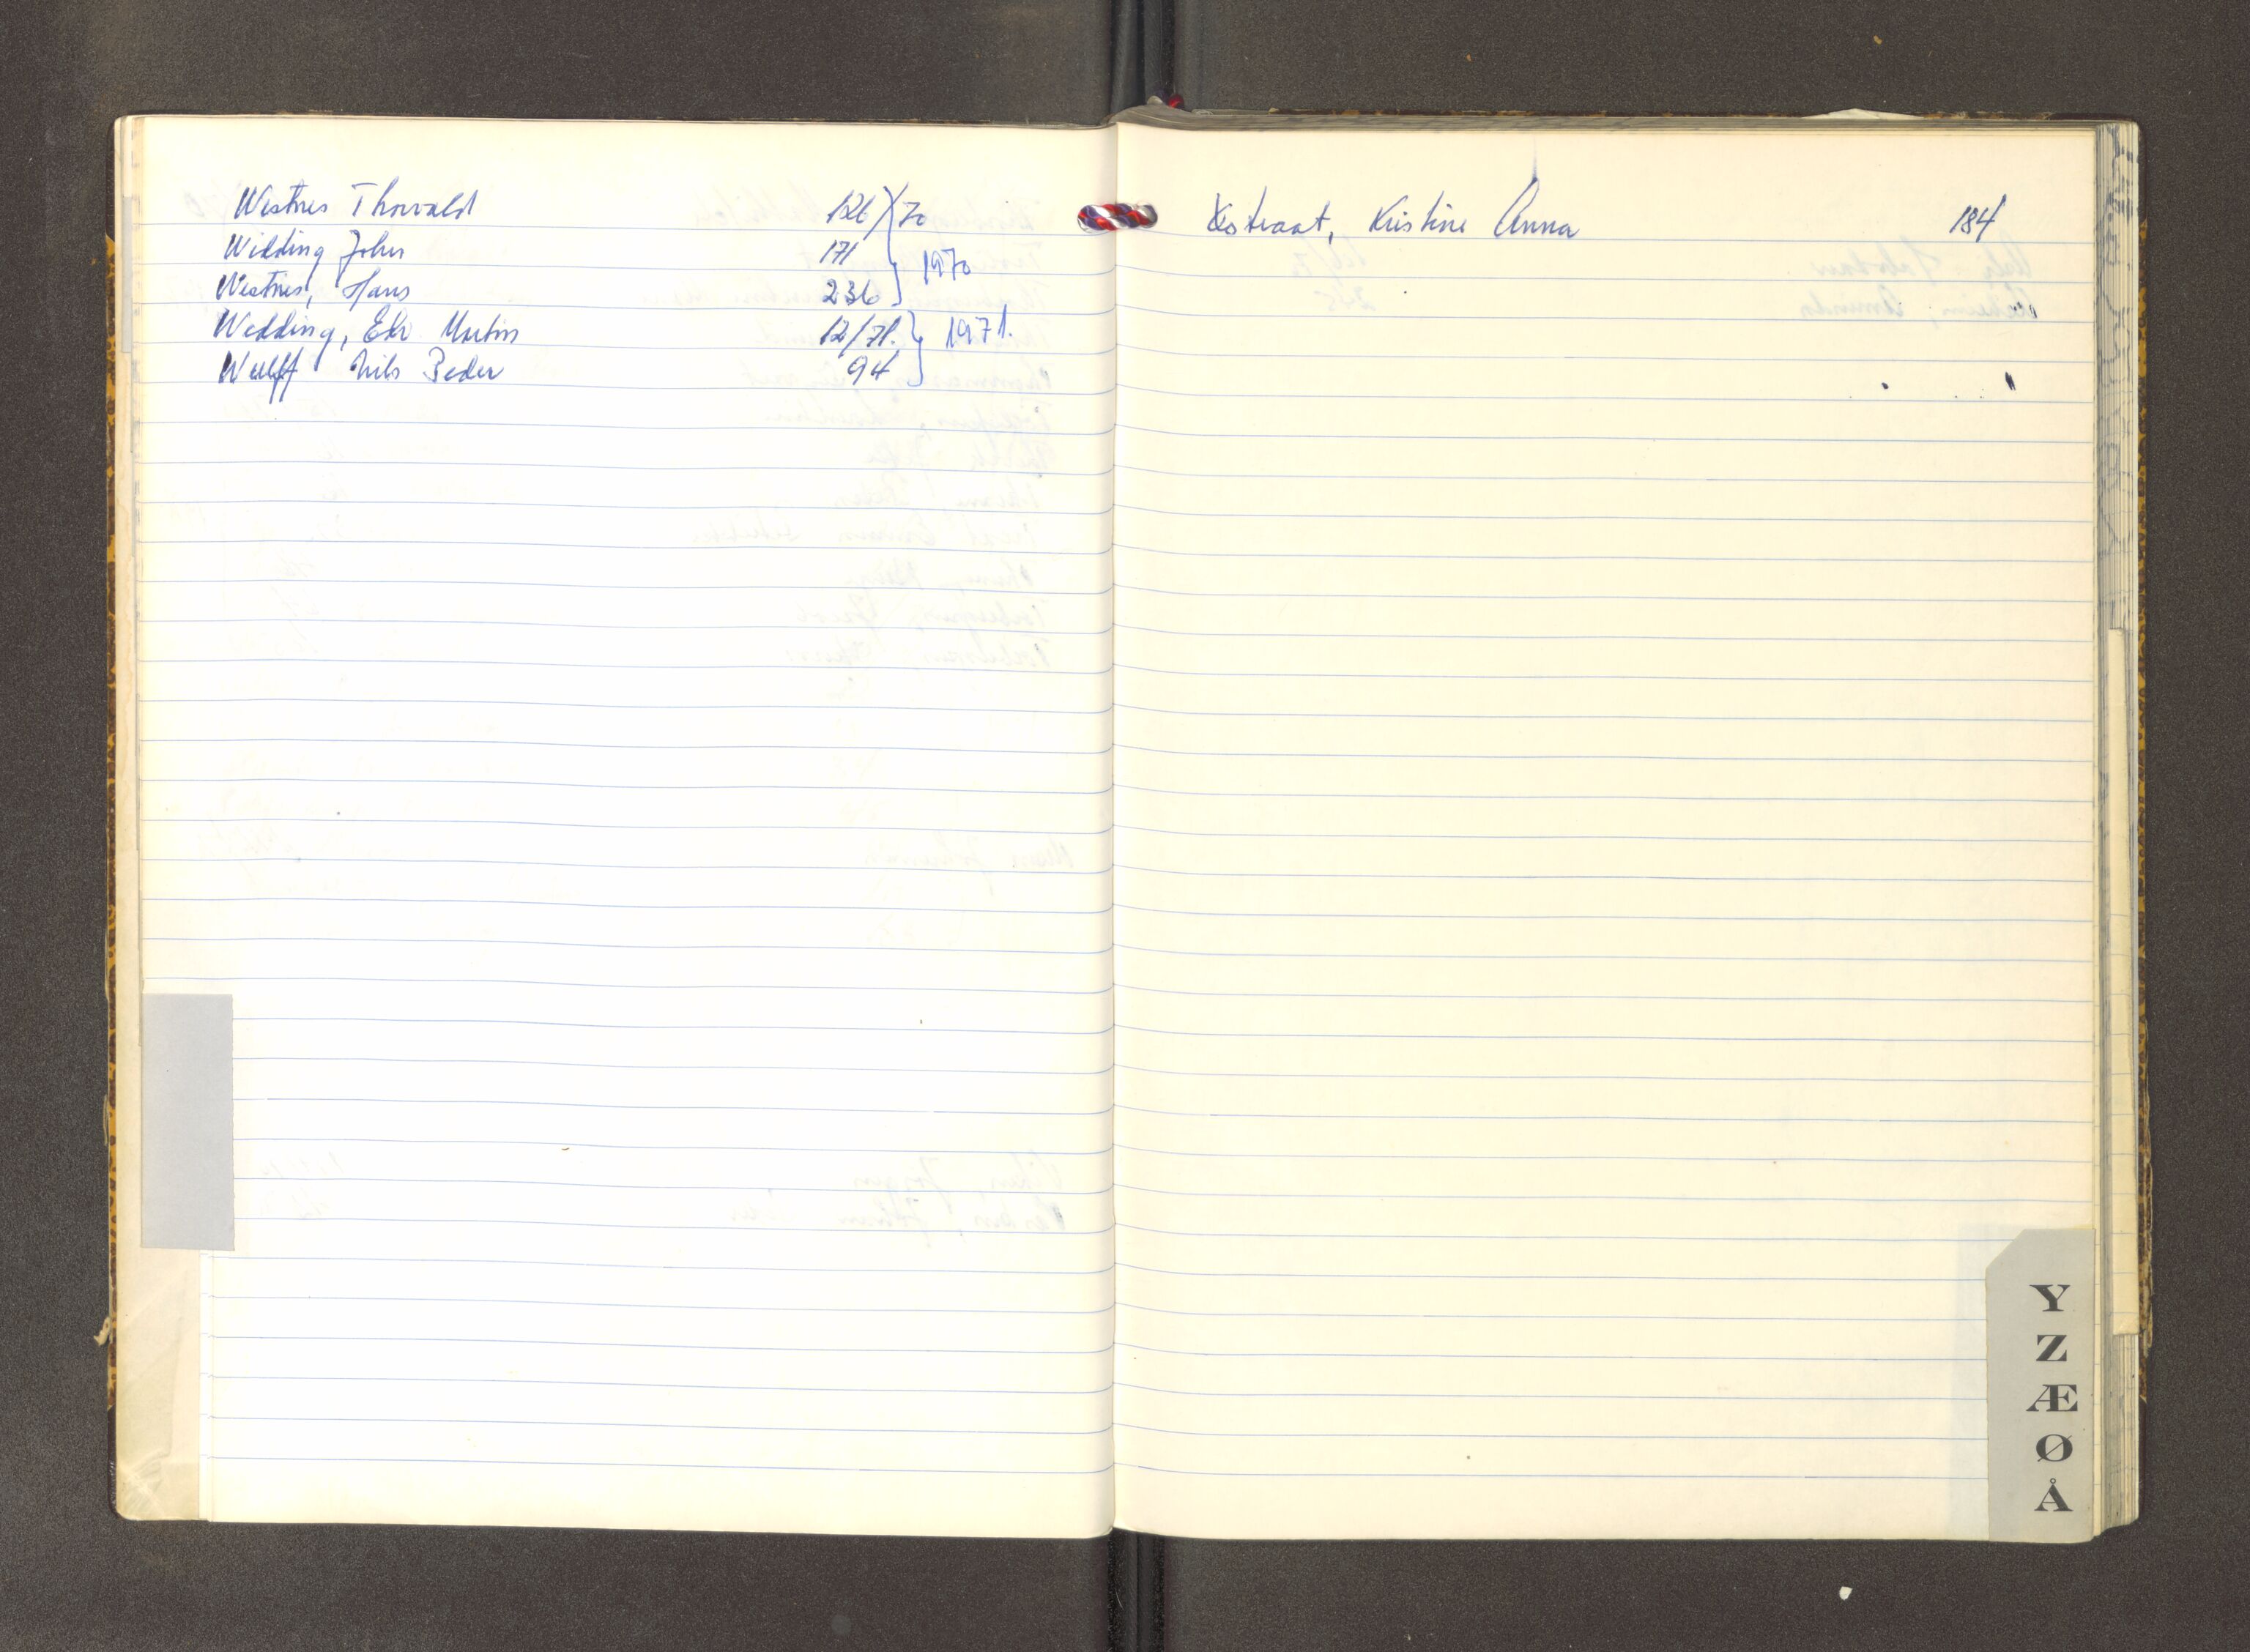 Westnes Thorvald 126/70
Wilding John 171
Westnes, Hans 236 } 1970
Wedding, Edv. Martin 12/71. } 1971.
Wulff Nils Peder 94
Kristine Anna 184
Y
Z
Æ
Ø
Å